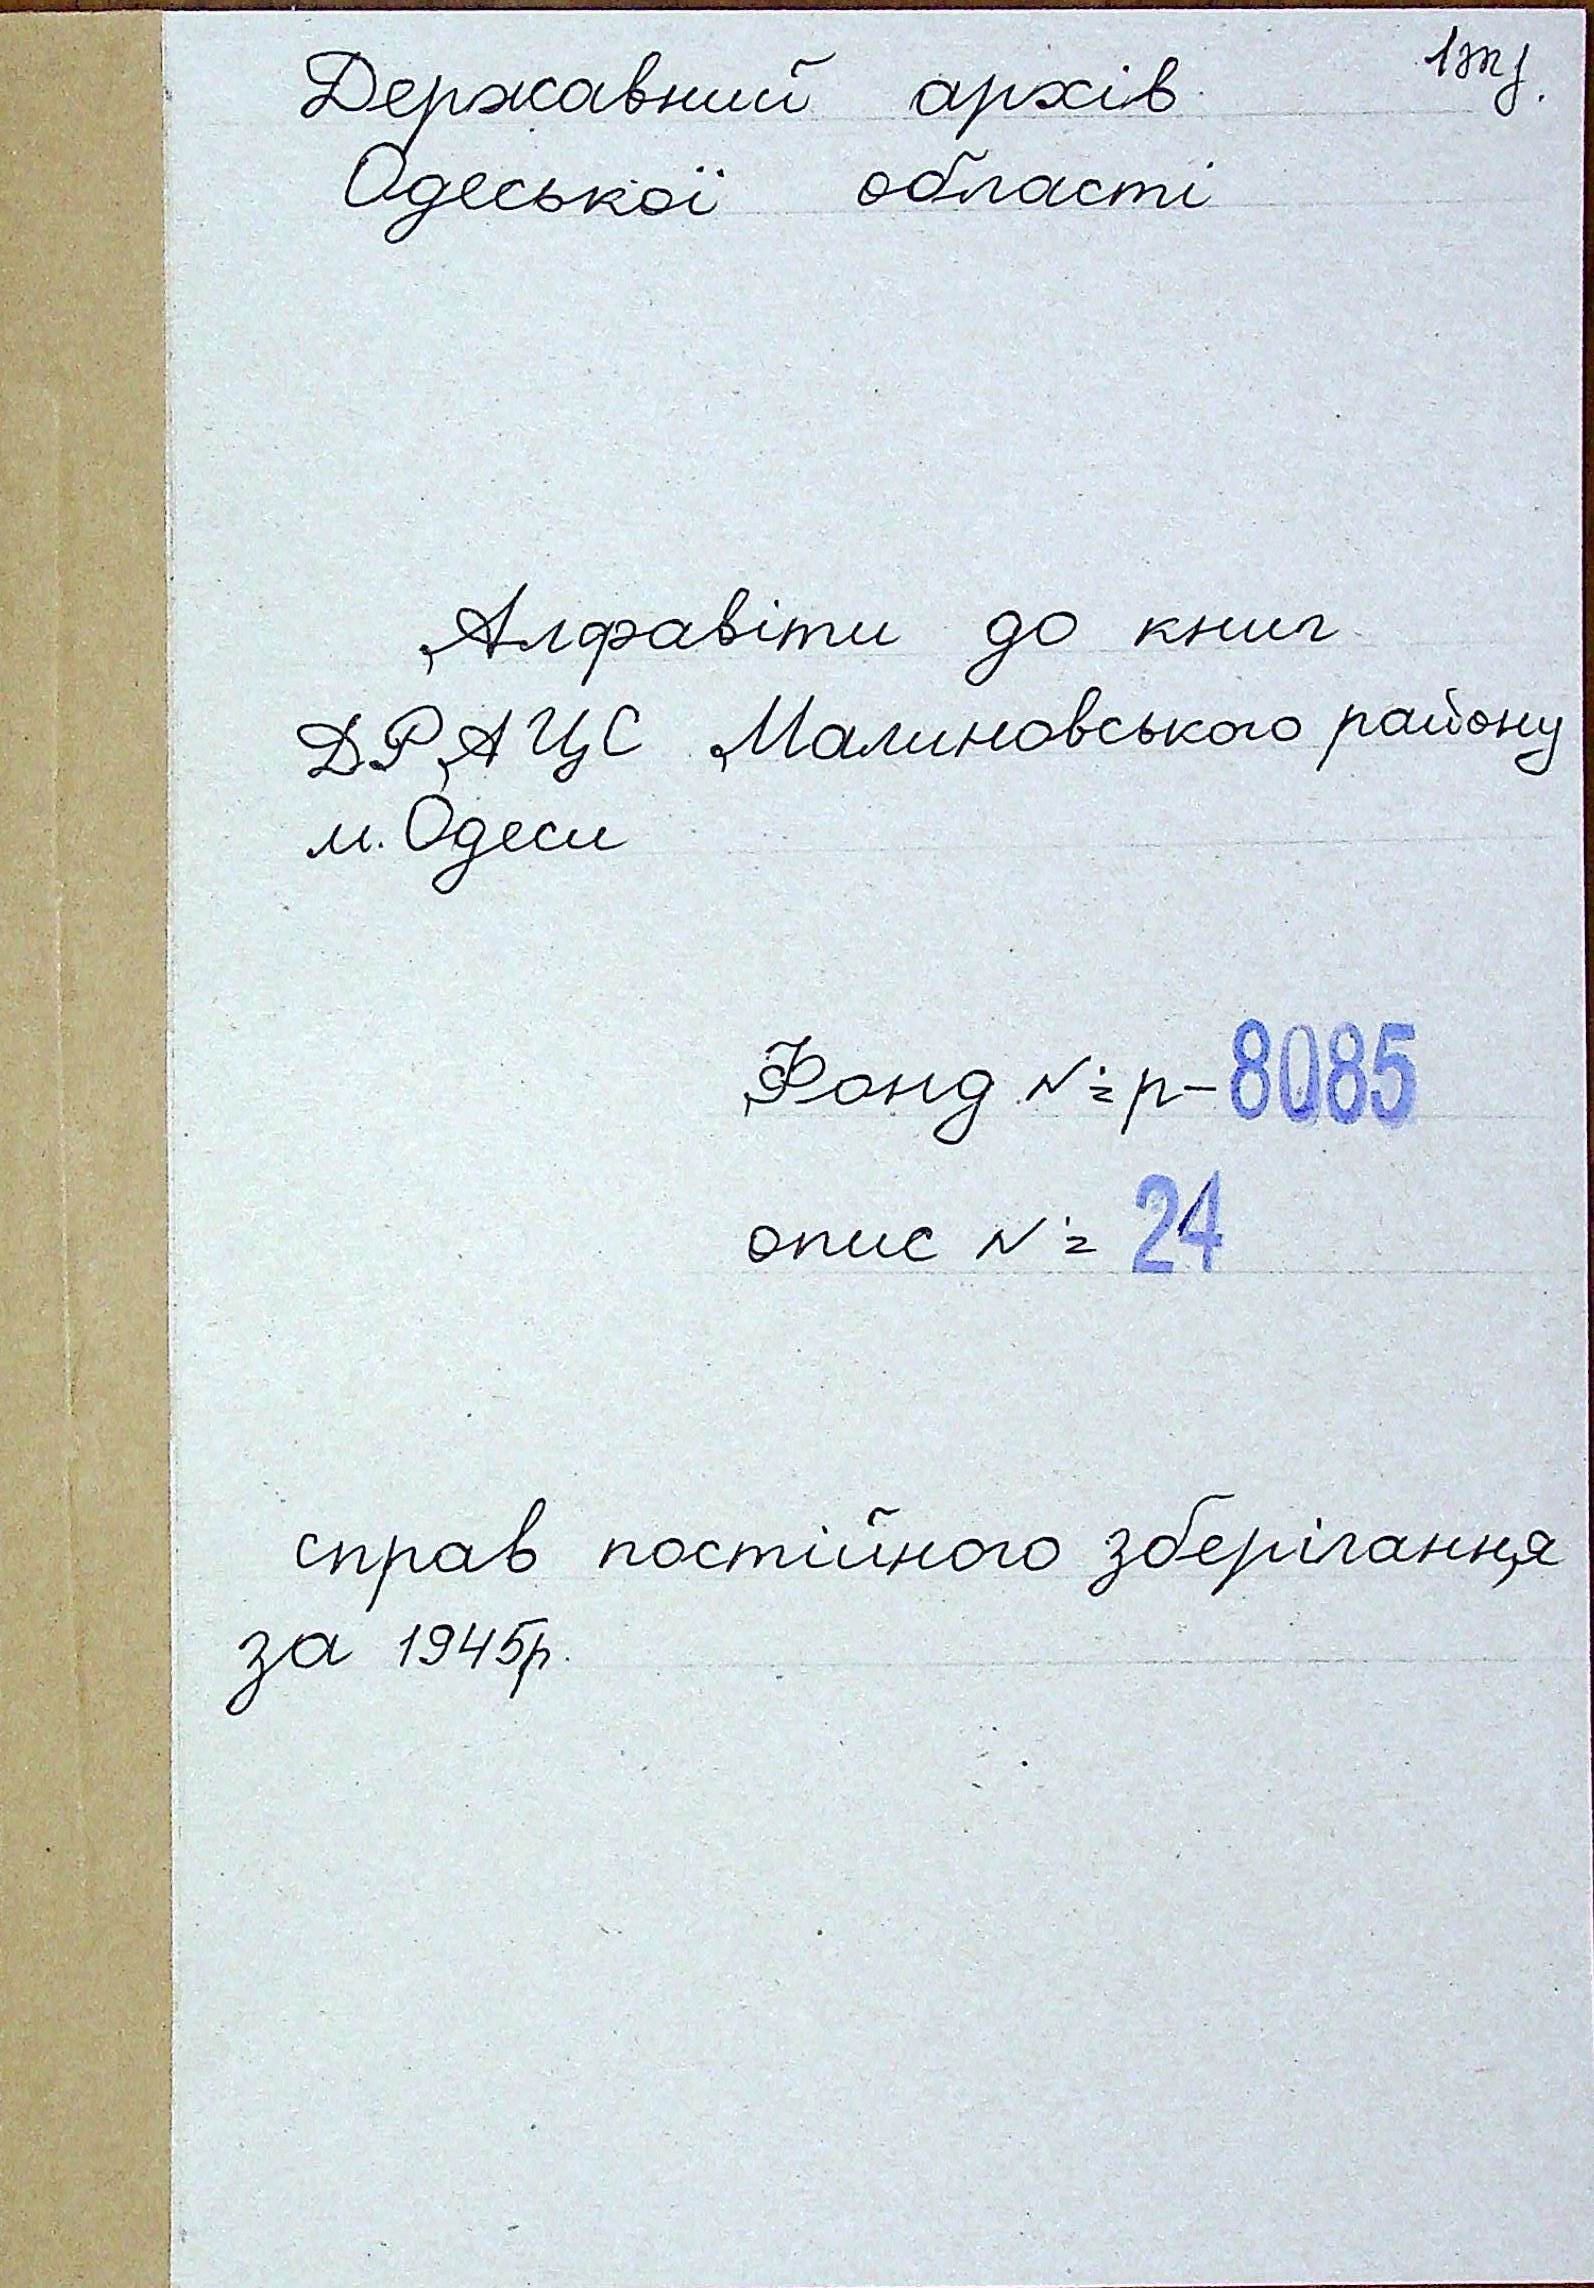 1 т.
Державний архів
Одеської області
Алфавіти до книг
ДРАЦС Малиновського району
м. Одеси
Фонд № р-8085
опис № 24
справ постійного зберігання
за 1945р.